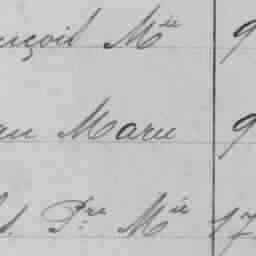 nçois Mie 9
an Marie 9
Pre Mie 17